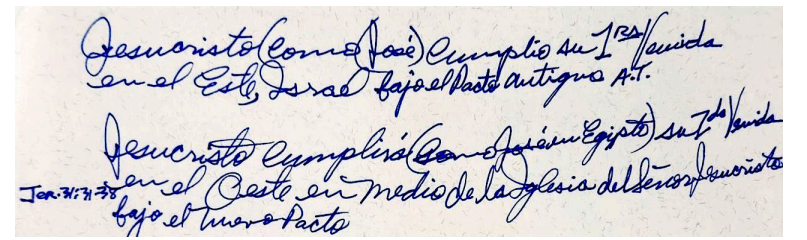 Jesucristo (como José) cumplio su 1ra Venida
en el Este, Israel bajo el Pacto antiguo A.T.
Jesucristo cumplirá (como José en Egipto) su 2da Venida
Jer. 31:31-38 en el Oeste en medio de la Iglesia del Señor Jesucristo
bajo el nuevo Pacto